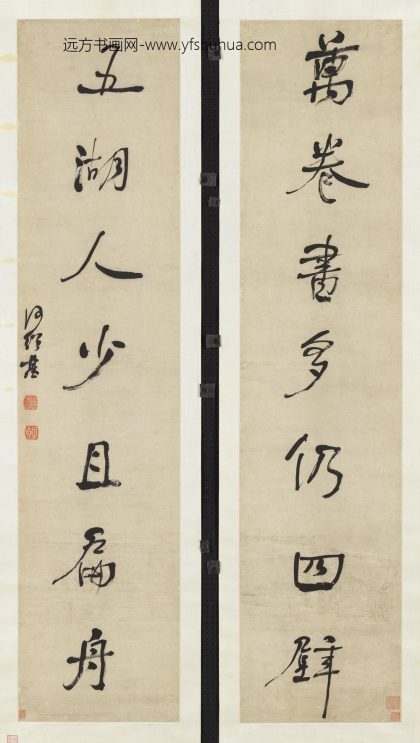 远方书画网-www.yfshuhua.com
萬卷書多仍四壁
五湖人少且扁舟